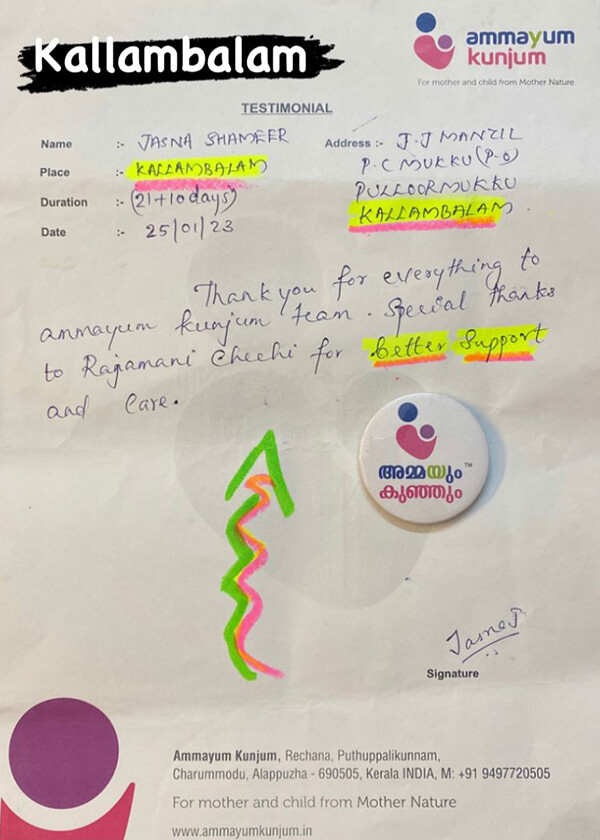 Kallambalam
ammayum
kunjum
For mother and child from Mother Nature
TESTIMONIAL
Name :- JASNA SHAMEER
Address :- J.J MANZIL
P.C MUKKU (P.O)
PULLOORMUKKU
KALLAMBALAM
Place :- KALLAMBALAM
Duration :- (21+10 days)
Date :- 25/01/23
Thank you for everything to
ammayum kunjum team. Special thanks
to Rajamani Chechi for better Support
and Care.
അമ്മയും TM
കുഞ്ഞും
Signature
Ammayum Kunjum, Rechana, Puthuppalikunnam,
Charummodu, Alappuzha - 690505, Kerala INDIA, M: +91 9497720505
For mother and child from Mother Nature
www.ammayumkunjum.in